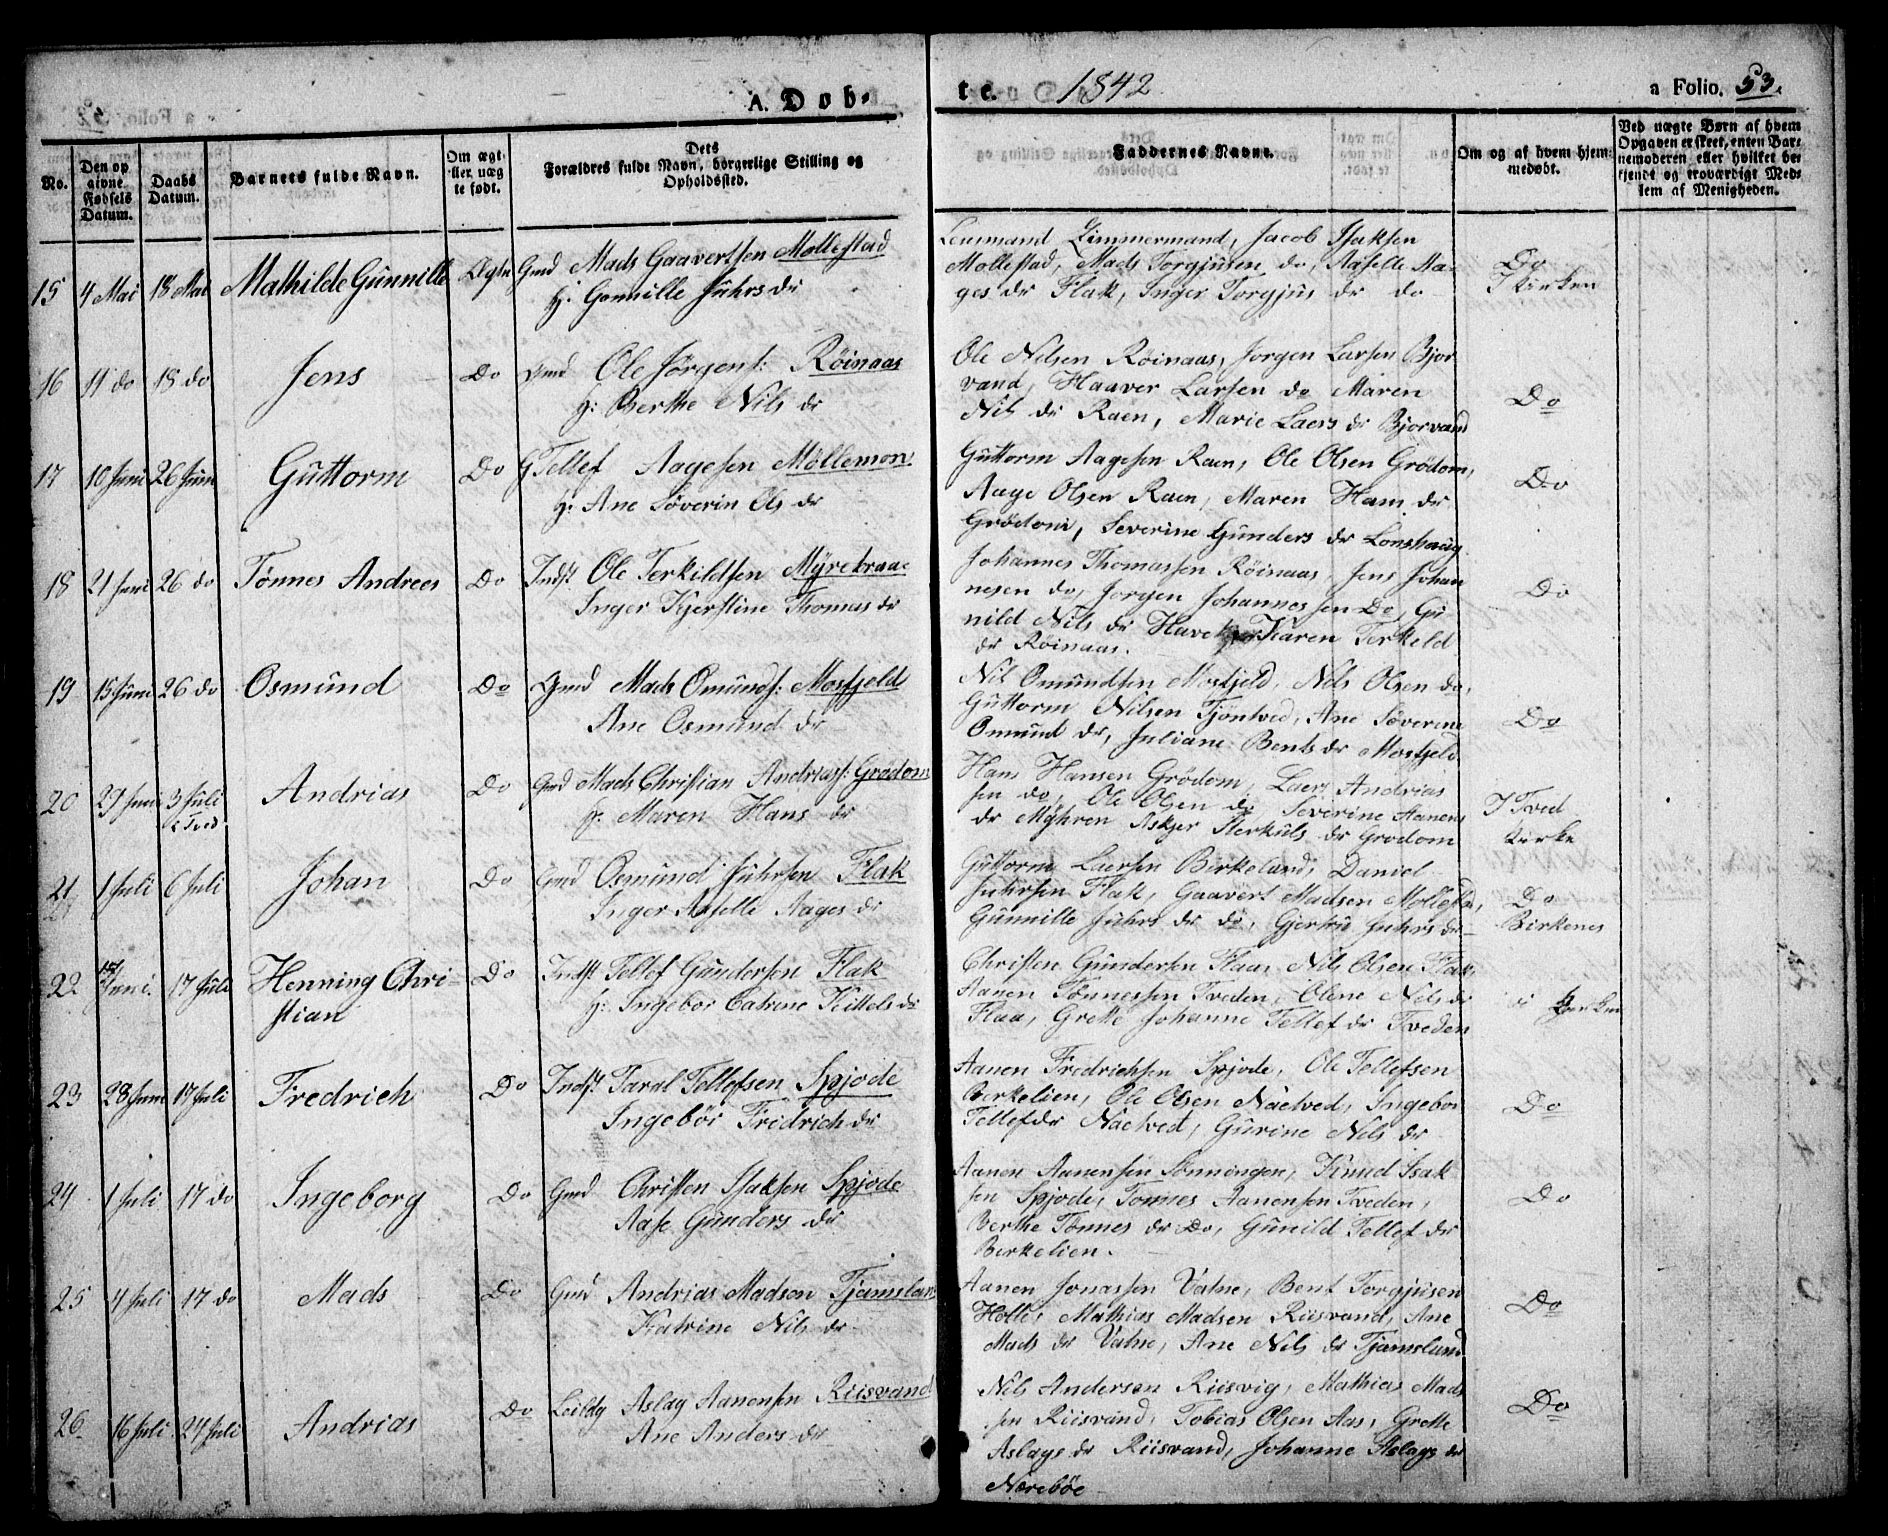 A. Døb- te. 1842 a Folio. 53.
No.
Den op givne Fødsels Datum.
Daabs Datum.
Barnets fulde Navn.
Om ægte eller uægte født.
Dets Forældres fulde Navn, borgerlige Stilling og Opholdssted.
Faddernes Navne.
Om og af hvem hjemmedøbt.
Ved uægte Børn af hvem Opgaven er skeet, enten Barnemoderen eller hvilket bekjendt og troværdigt Medlem af Menigheden.
15 4 Mai 18 Mai Mathilde Gunnille Ægte Gmd Mads Gaavertsen Mollestad
H: Gonnille Juhrs dr
Lensmand Zimmermand, Jacob Isaksen
Mollestad, Mads Torgjusen do, Aaselle Aa-
ges dr Flak, Inger Torgjus dr do
Do
I Kirken
16 11 do 18 do Jens Do Gmd Ole Jørgens: Røinaas
H: Berthe Nils dr
Ole Nilsen Røinaas, Jorgen Larsen Bjor
vand, Haaver Larsen do Maren
Nils dr Raen, Marie Laers dr Bjorvand
Do
17 10 Juni 26 Juni Guttorm Do G Tellef Aagesen Möllemon
H: Ane Söverin Ols dr
Guttorm Aagesen Raen, Ole Olsen Grödom,
Aage Olsen Raen, Maren Hans dr
Grödom, Severine Gunders dr Lonshaug
Do
18 21 Juni 26 do Tønnes Andrees Do Indst Ole Terkildsen Myrebraae
Inger Kjerstine Thomas dr
Johannes Thomassen Röinaas, Jens Johan
nesen do, Jorgen Johannessen Do, Gu
nild Nils dr Karen Terkeld
dr Röinaas.
Do
19 15 Juni 26 do Osmund Do Gmd Mads Omunds: Mosfjeld
Ane Osmund dr
Nil Omundsen Mosfjeld, Nils Olsen do,
Guttorm Nilsen Tjöntved, Ane Söverine
Omund dr, Juliane Bents dr Mosfjeld
Do
20 29 Juni 3 Juli i Tved Andrias Do Gmd Mads Christian Andriass: Grödom
H: Maren Hans dr
Hans Hansen Grödom, Laers Andrias
sen do, Ole Olsen do Severine Aanens
dr Myhren Askjer Terkuls dr Grodom
I Tved
Kirke
21 1 Juli 6 Juli Johan Do Gmd Osmund Juhrsen Flak
Inger Aaselle Aages dr
Guttorm Laersen Birkeland, Daniel
Juhrsen Flak, Gaavert Madsen Mollestad,
Gunnille Juhrs dr do, Gjertru Juhrs dr
Do
Birkenes
22 Juni. 17 Juli Henning Chri-
stian Do Indst Tellef Gundersen Flak
H: Ingebor Catrine Kittels dr
Christen Gundersen Flaa, Nils Olsen Flak,
Aanen Tønnessen Tveden, Olene Nils dr
Flaa, Grethe Johanne Tellef dr Tveden
i Kirken
23 28 Juni 17 Juli Fredrich Do Indst Taral Tellefsen Spjode
Ingebör Fridrich dr
Aanen Fredrichsen Spjode, Ole Tellefsen
Berkelien, Ole Olsen Naetved, Ingebor
Tellefdr Naetved, Gurine Nils dr
Do
24 1 Juli 17 do Ingeborg Do Gmd Christen Isaksen Spjode
Aase Gunders dr
Aanen Aanensen Sonningen, Knud Isak
sen Spjode, Tonnes Aanensen Tveden,
Berthe Tonnes dr Do, Gunild Tellef dr
Berkelien.
Do
25 4 Juli 17 do Mads Do Gmd Andrias Madsen Tjamslan
Katrine Nils dr
Aanen Jonassen Vatne, Bent Torgjusen
Holle, Mathias Madsen Riisvand, Ane
Mads dr Vatne, Ane Nils dr Tjamslund
Do
26 16 Juli 24 Juli Andrias Do Leildg Aslag Aanensen Riisvand
Ane Anders dr
Nils Andersen Riisvig, Mathias Mads
sen Riisvand, Tobias Olsen Aas, Grethe
Aslags dr Riisvand, Johanne Aslags dr
Næreböe
Do